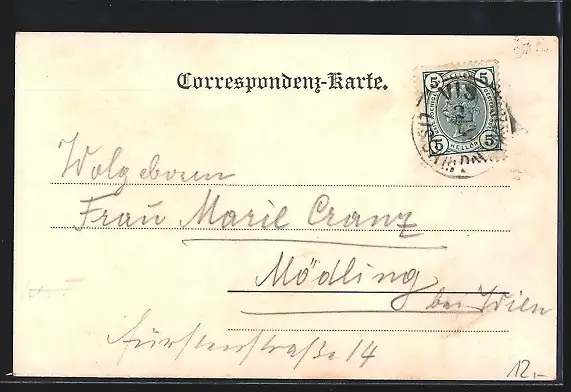 Correspondenz-Karte.
5 5
HELLER
5 5
Wolgeboren
Frau Marie Cranz
Mödling
bei Wien
Fürstenstraße 14
12,-